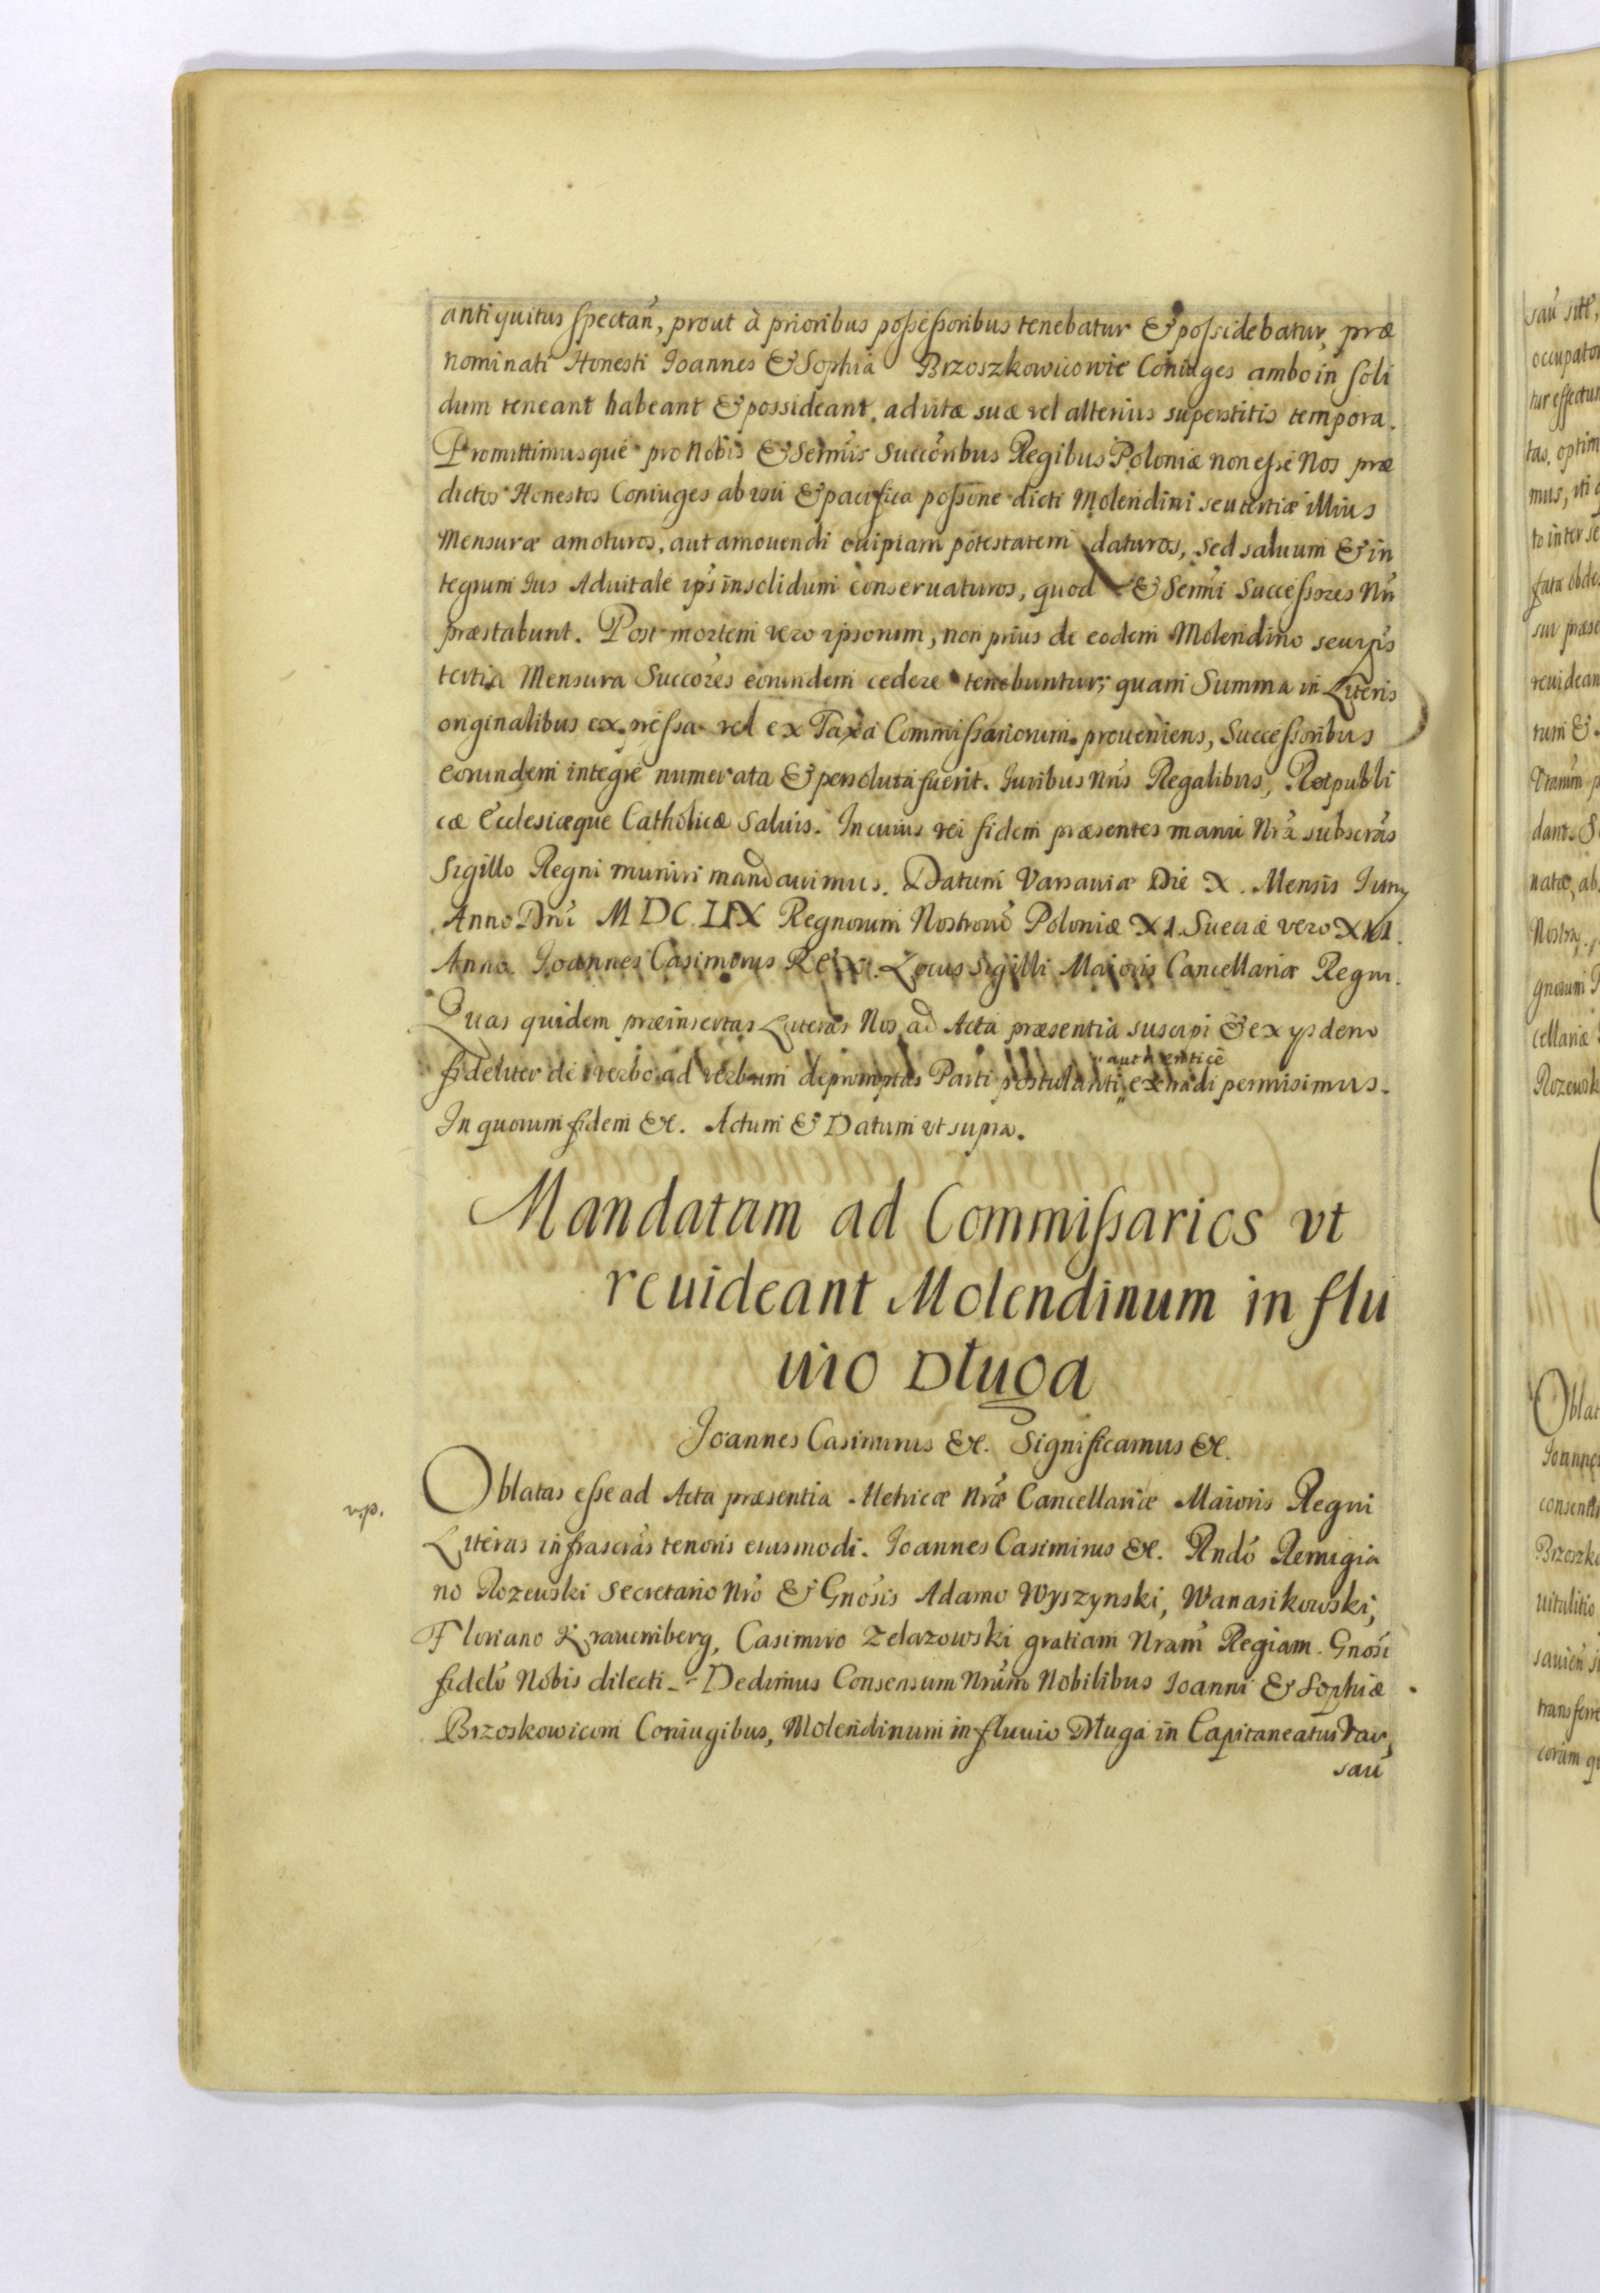 antiquitus spectañ, prout à prioribus possessoribus tenebatur & possidebatur, præ
nominati Honesti Joannes & Sophia Brzoszkowicowie Coniuges ambo in soli
dum teneant habeant & possideant, ad vitæ suæ vel alterius superstitis tempora.
Promittimusque pro Nobis & Sermis Succoribus Regibus Poloniæ non esse Nos præ
dictos Honestos Coniuges ab usu & pacifica possone dicti Molendini seu tertiæ illius
Mensuræ amoturos, aut amouendi cuipiam potestatem daturos, sed saluum & in
tegrum Jus Aduitale ips insolidum conseruaturos, quod & Sermi Successores Nri
præstabunt. Post mortem vero ipsorum, non prius de eodem Molendino seu ips
tertia Mensura Succores eorundem cedere tenebuntur, quam Summa in Literis
originalibus expressa vel ex Taxa Commissariorum proueniens, Successoribus
eorundem integre numerata & persoluta fuerit. Juribus Nris Regalibus, Reipubli
cæ Ecclesiæque Catholicæ saluis. In cuius rei fidem præsentes manu Nra subscras
Sigillo Regni muniri mandauimus. Datum Varsauiæ Die X. Mensis Juny
Anno Dni MDCLIX Regnorum Nostroru Poloniæ XI. Sueciæ vero XII.
Anno. Joannes Casimirus Rex. Locus Sigilli Maioris Cancellariæ Regni.
Quas quidem præinsertas Literas Nos ad Acta præsentia suscipi & ex ysdem
authentice
fideliter de verbo ad verbum depromptas Parti postulanti extradi permisimus.
In quorum fidem &c. Actum & Datum vt supra.
Mandatum ad Commissarios vt
reuideant Molendinum in flu
uio Długa
Joannes Casimirus &c. Significamus &c.
v.p.
Oblatas esse ad Acta præsentia Metricæ Nræ Cancellariæ Maioris Regni
Literas infrascras tenoris eiusmodi. Joannes Casimirus &c. Rndo Remigia
no Rozewski Secretario Nro & Gnosis Adamo Wyszynski, Wanasikowski,
Floriano Krauemberg, Casimiro Zelazowski gratiam Nram Regiam. Gnosi
fidelr Nobis dilecti. Dedimus Consensum Nrum Nobilibus Joanni & Sophiæ
Brzoskowicom Coniugibus, Molendinum in fluuio Długa in Capitaneatu Var,
sau